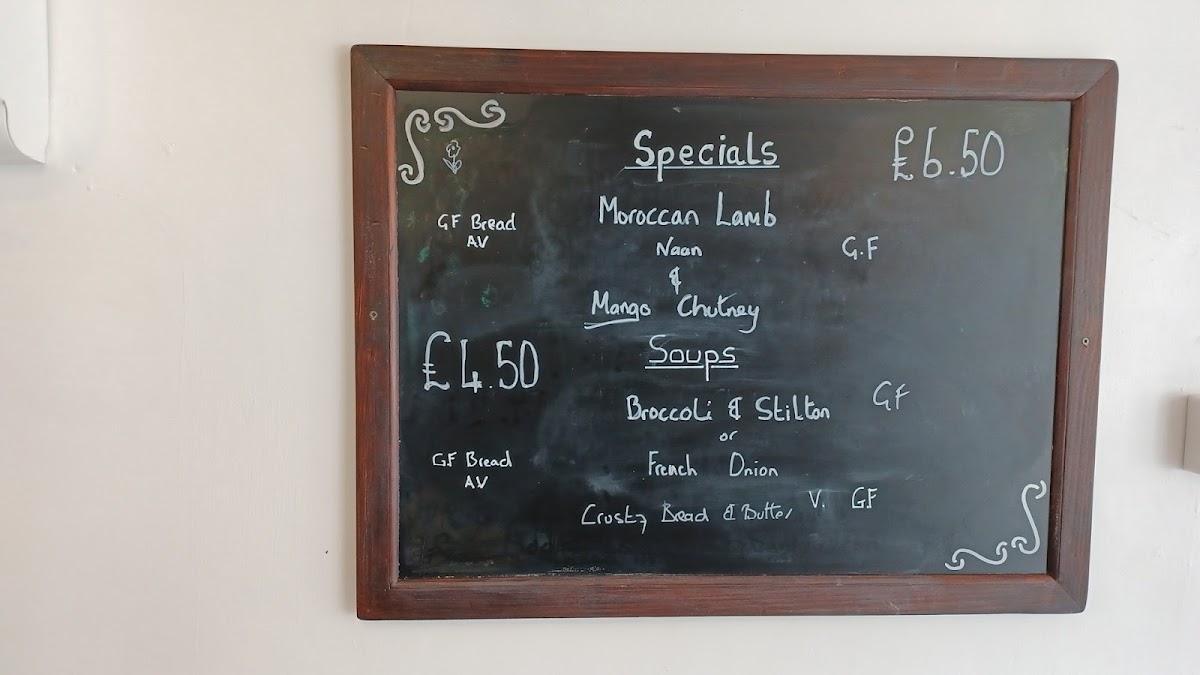 Specials
£6.50
Moroccan Lamb
GF Bread
AV
Naan
G.F
&
Mango Chutney
Soups
£4.50
Broccoli & Stilton
GF
or
GF Bread
AV
French Onion
V. GF
Crusty Bread & Butter